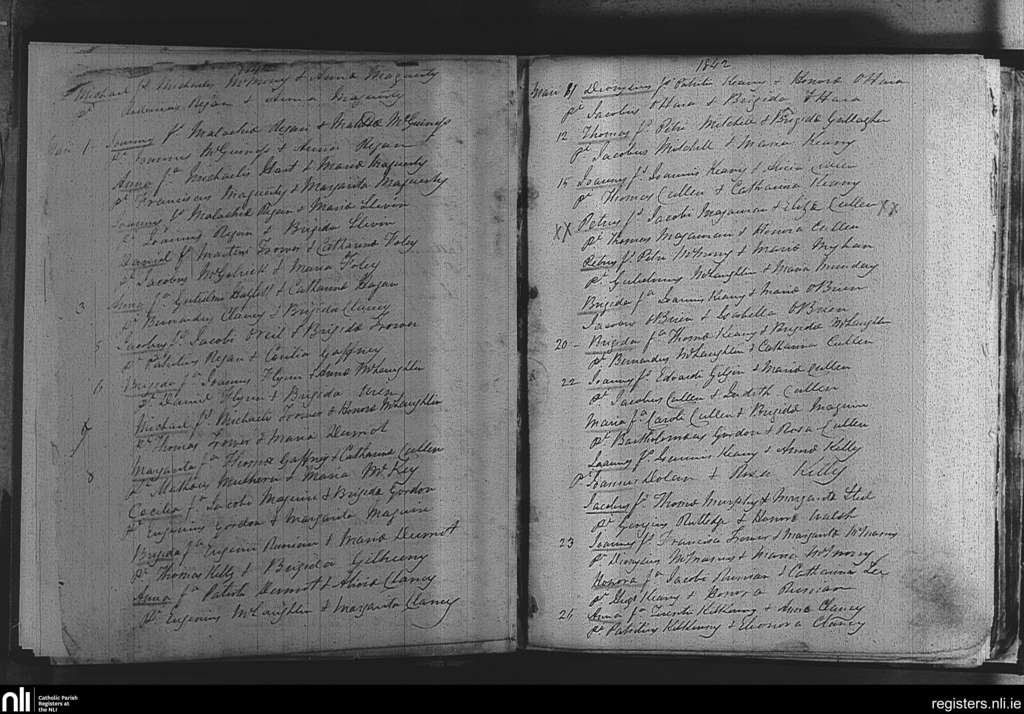 1842
Michael fs Michaelis McMorry & Anna Maguerty
pt Adamus Regan & Anna Maguerty
1. Joannes fs Malachia Regan & Matilda McGuiness
pt Joannes McGuiness & Anna Regan
Anna fa Michaelis Hart & Maria Maguerty
pt Franciscus Maguerty & Margarita Maguerty
Joannes fs Malachia Regan & Maria Slevin
pt Joannes Regan & Brigida Slevin
Daniel fs Martin Trower & Catharina Foley
pt Jacobus McGetrick & Maria Foley
3 Anna fa Gulielmi & Catharina Hagan
pt Bernardus Clancy & Brigida Clancy
5 Jacobus fs Jacobi Oneil & Brigida Trower
pt Patritius Regan & Cecilia Gaffney
6 Brigida fa Joannis Flynn & Anna McLaughlin
pt Daniel Flynn & Brigida
Michael fs Michaelis Trower & Honora McLaughlin
pt Thomas Trower & Maria Dermot
Margarita fa Thoma Gaffney & Catharina Cullen
8 pt Mathew & Maria McKey
Cecilia fa Jacobi Maguire & Brigida Gordon
pt Eugenius Gordon & Margarita Maguire
Brigida fa Eugenii Runian & Maria Dermot
pt Thomas Kelly & Brigida Gilheeny
Anna fa Patritii Dermot & Alicia Clancy
pt Eugenius McLaughlin & Margarita Clancy
1842
Dionysius fs Patritii Keany & Honora OHara
pt Jacobus OHara & Brigida OHara
12 Thomas fs Petri Mitchell & Brigida Gallagher
pt Jacobus Mitchell & Maria Keany
15 Joannes fs Joannis Keany & Alicia Cullen
pt Thomas Cullen & Catharina Keany
XX Petrus fs Jacobi Magawran & Eliza Cullen XX
pt Thomas Magawran & Honora Cullen
Petrus fs Petri McMorry & Maria Myhan
pt Gulielmus McLaughlin & Maria Munday
Brigida fa Joannis Keany & Maria OBrien
OBrien & Isabella OBrien
20 - Brigida fa Thoma Keany & Brigida McLaughlin
pt Bernardus McLaughlin & Catharina Cullen
22 - Joannes fs Edvardi Gilgin & Maria Cullen
pt Jacobus Cullen & Judith Cullen
Maria fa Caroli Cullen & Brigida Maguire
pt Bartholomaeus Gordon & Rosa Cullen
Joannes fs Joannis Keany & Anna Kelly
pt Joannes Dolan & Rosa Kelly
Jacobus fs Thoma Murphy & Margarita
pt Georgius Rutledge & Honora Walsh
23 Joannes fs Francisci Trower & Margarita McMorris
pt Dionysius McMorris & Maria McMorry
Honora fa Jacobi Runian & Catharina Lee
pt Keany & Honora Runian
26 Anna fa Terentii Kilkenny & Anna Clancy
pt Patritius Kilkenny & Eleonora Clancy
nli
Catholic Parish
Registers at
the NLI
registers.nli.ie